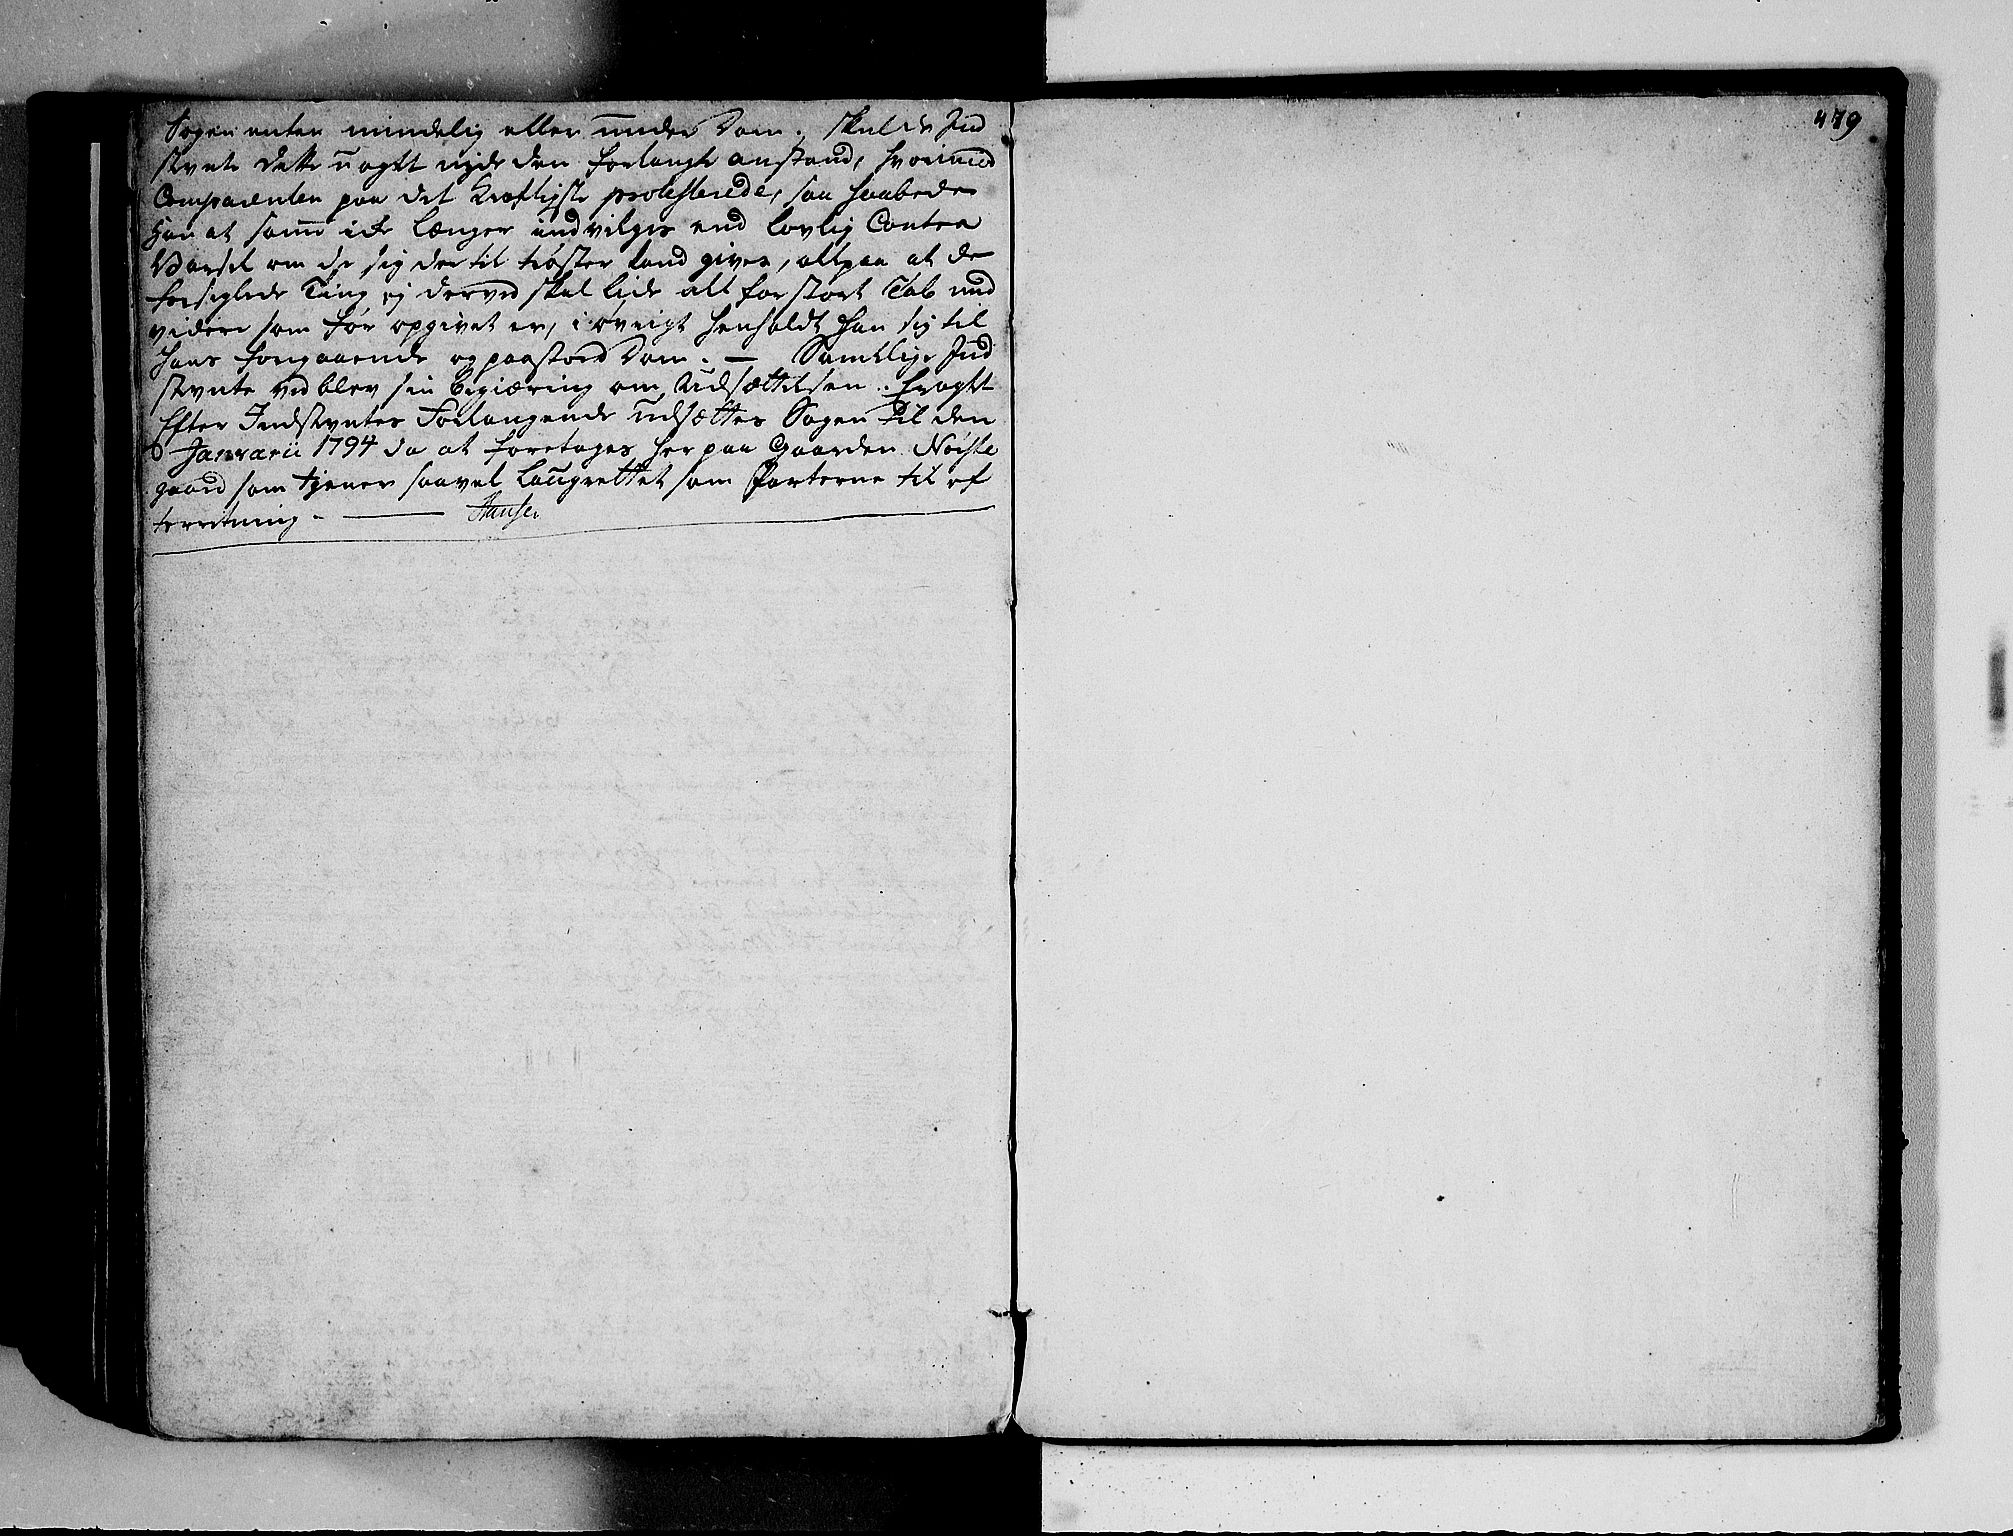 Sagen enten mindelig eller under Dom. Skulde Ind
stevnte dette uagtet nyde den forlangte anstand, hvorimod
Comparenten paa det kraftigste protesterede, saa haabede
Han at samme icke længer indvilges end lovlig Contra
Varsel om de sig der til trøster kand gives, alt paa at de
forseglede Ting ej derved skal lide alt for stort Tab med
videre som før opgivet er, i øvrigt henholdt han sig til
hans foregaaende og paastod Dom. — Samtlige Ind
stevnte ved blev sin begiæring om Udsættelsen.
Efter Indstevntes Forlangende udsættes Sagen til den
6 Januarii 1794 da at foretages her paa Gaarden Nøste
gaard som tjener saavel Laugrettet som Parterne til ef
terretning. — Hansen
479